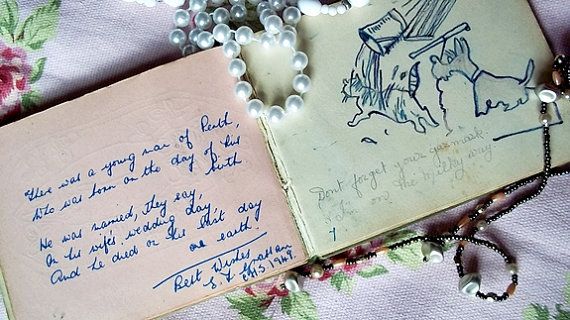 There was a young man of Perth,
Who was born on the day of his
birth
He was named, they say,
On his wife's wedding day,
And he died on his last day
on earth.
Best Wishes
1949.
Dont forget your gasmask
on the milky way